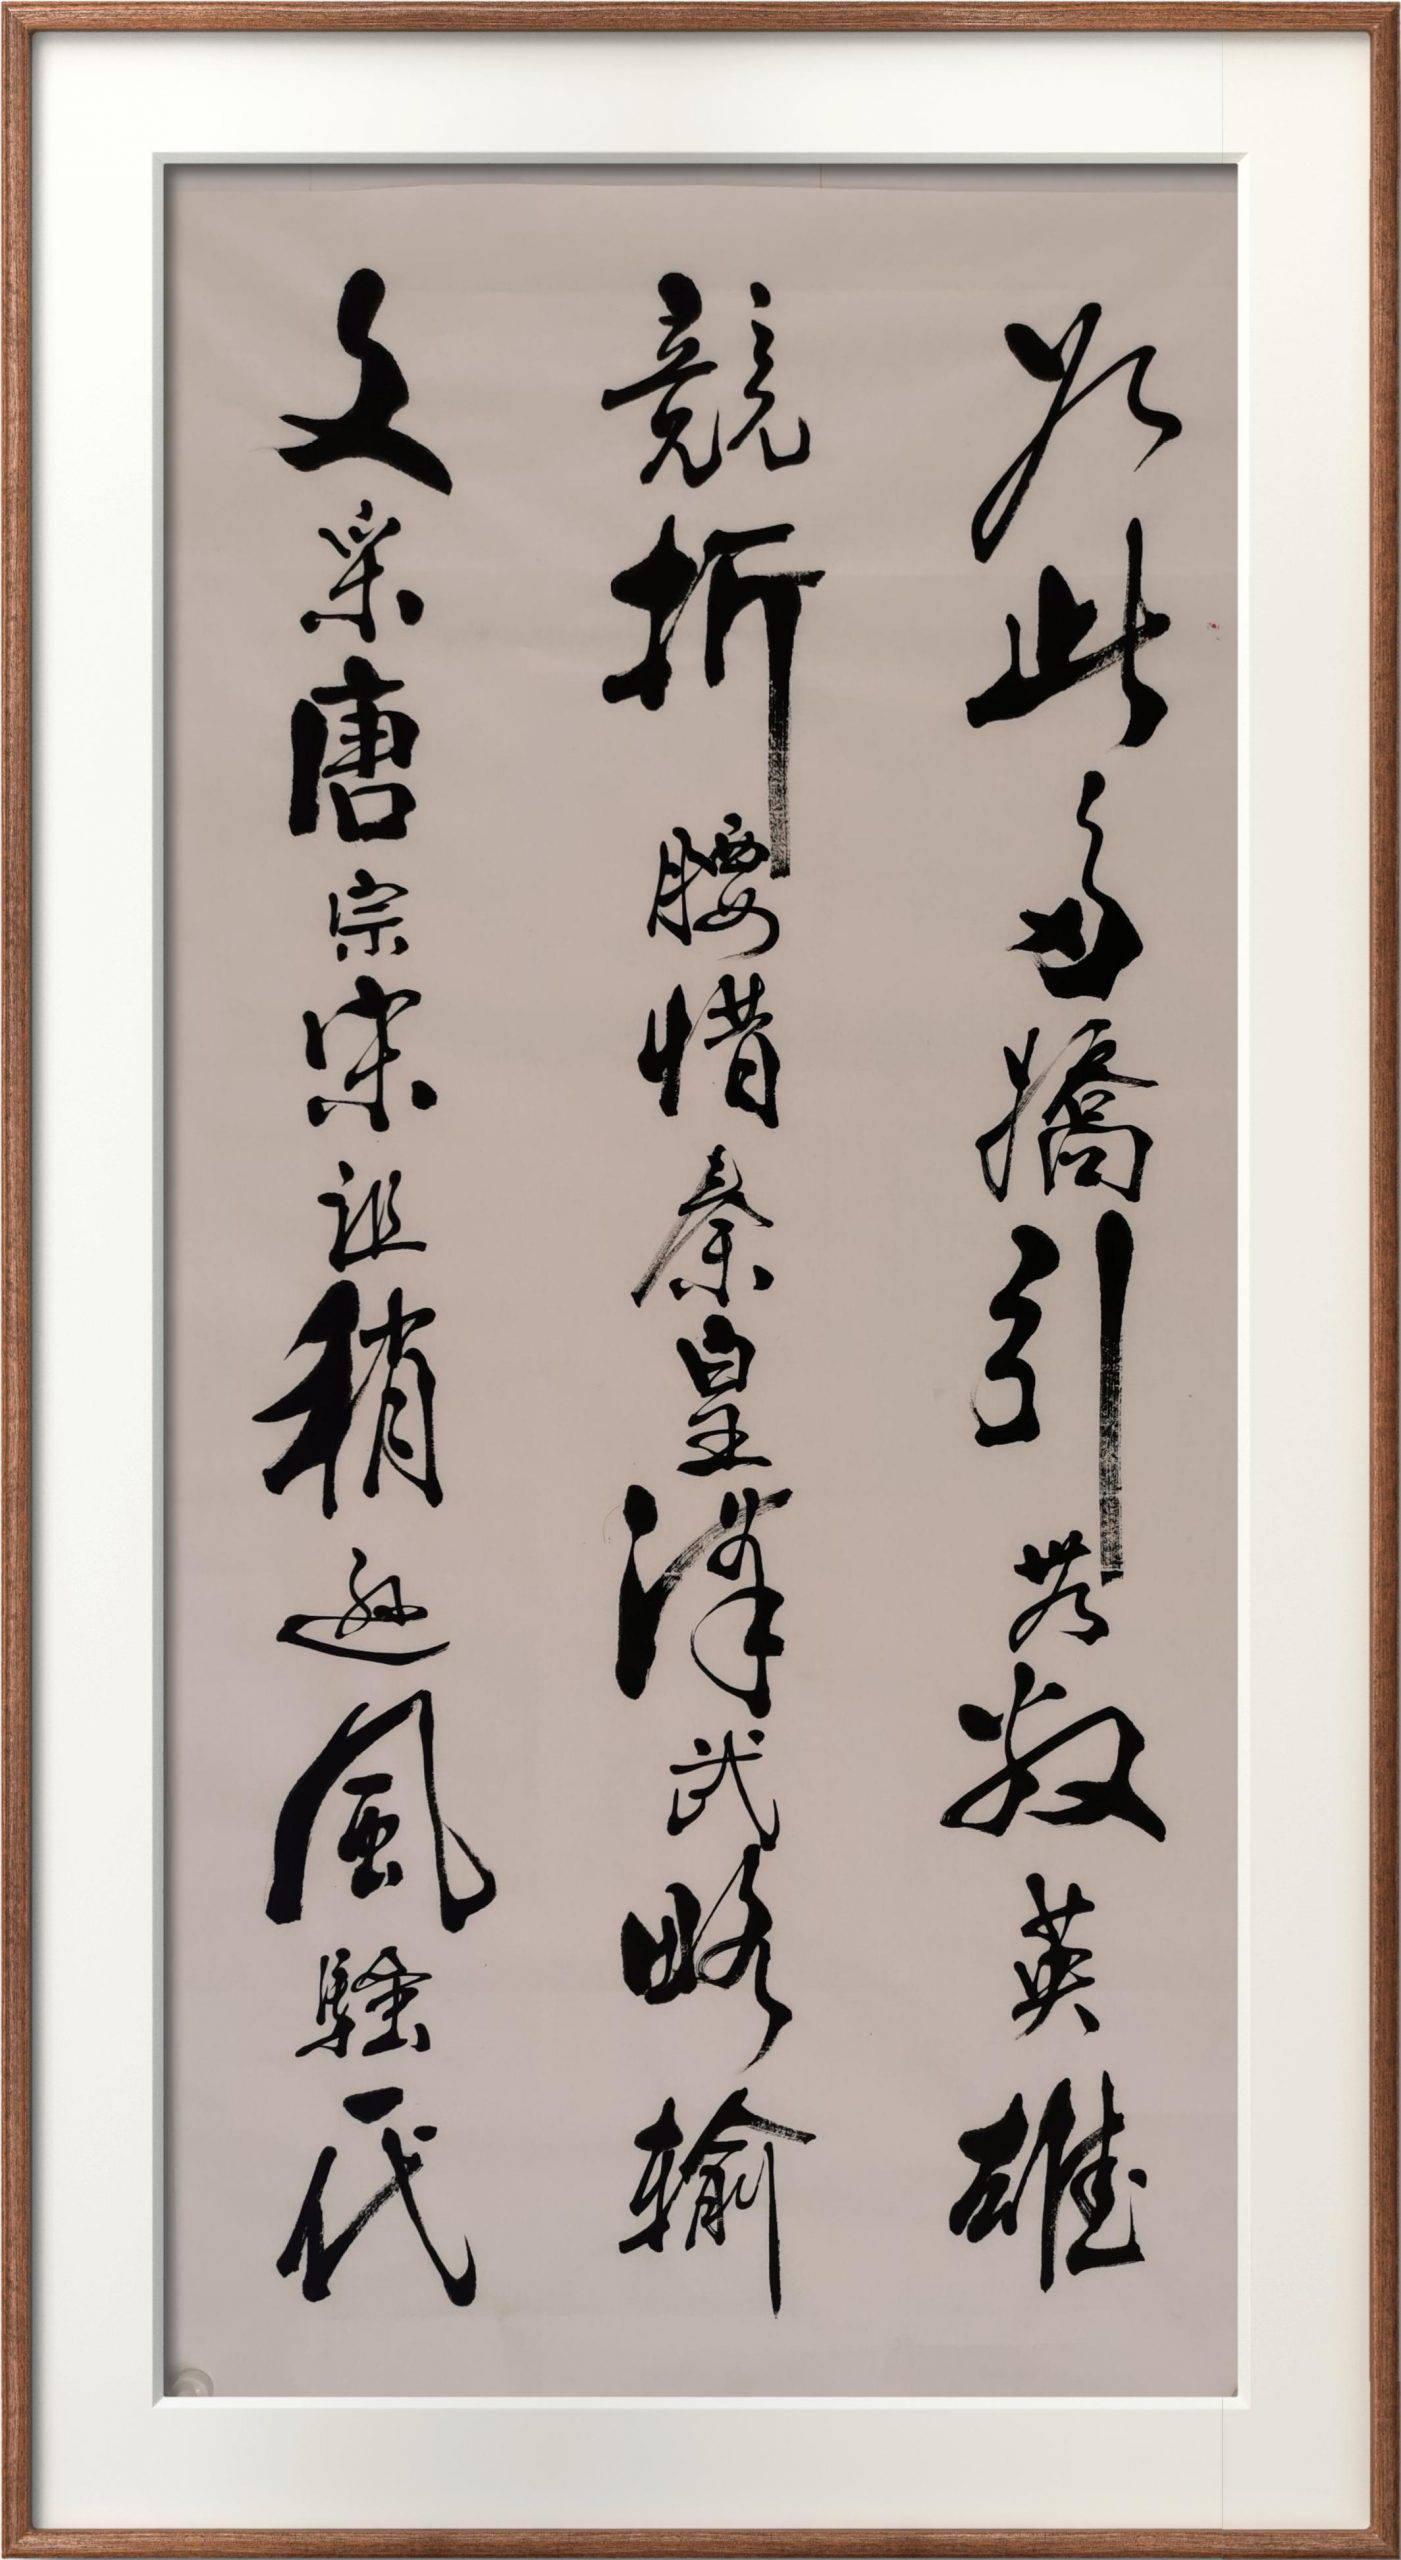 如此多嬌引無數英雄
競折腰惜秦皇漢武略輸
文采唐宗宋祖稍遜風騷一代